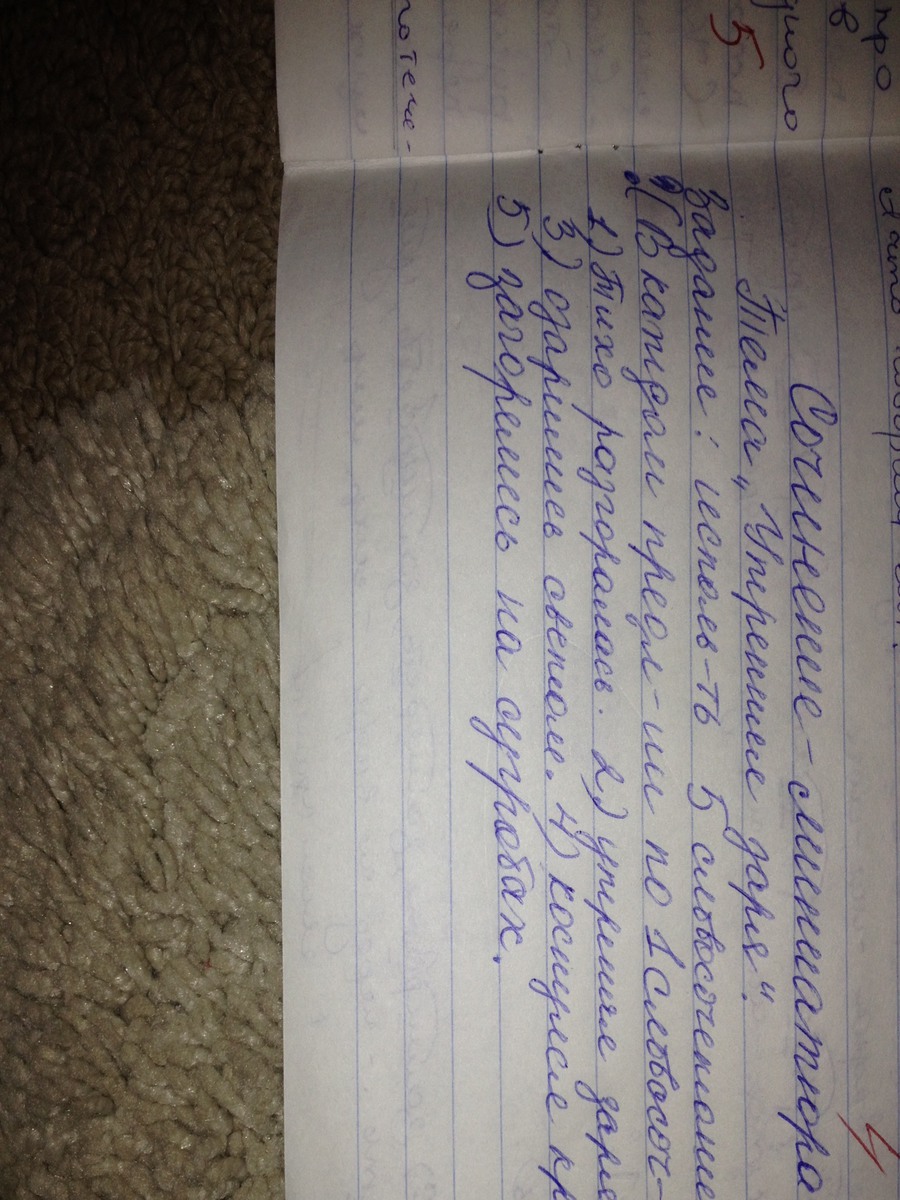 про
в
дного
5
потече-
Сочинение-миниатюра
Тема „Утренняя заря".
Задание: исполь-ть 5 словосочетани
В каждом предл-ии по 1 словосоч-
1) Тихо разгоралась. 2) утренняя заря
3) озаришев светиле. 4) коснулся кр
5) загорелись на сугробах.